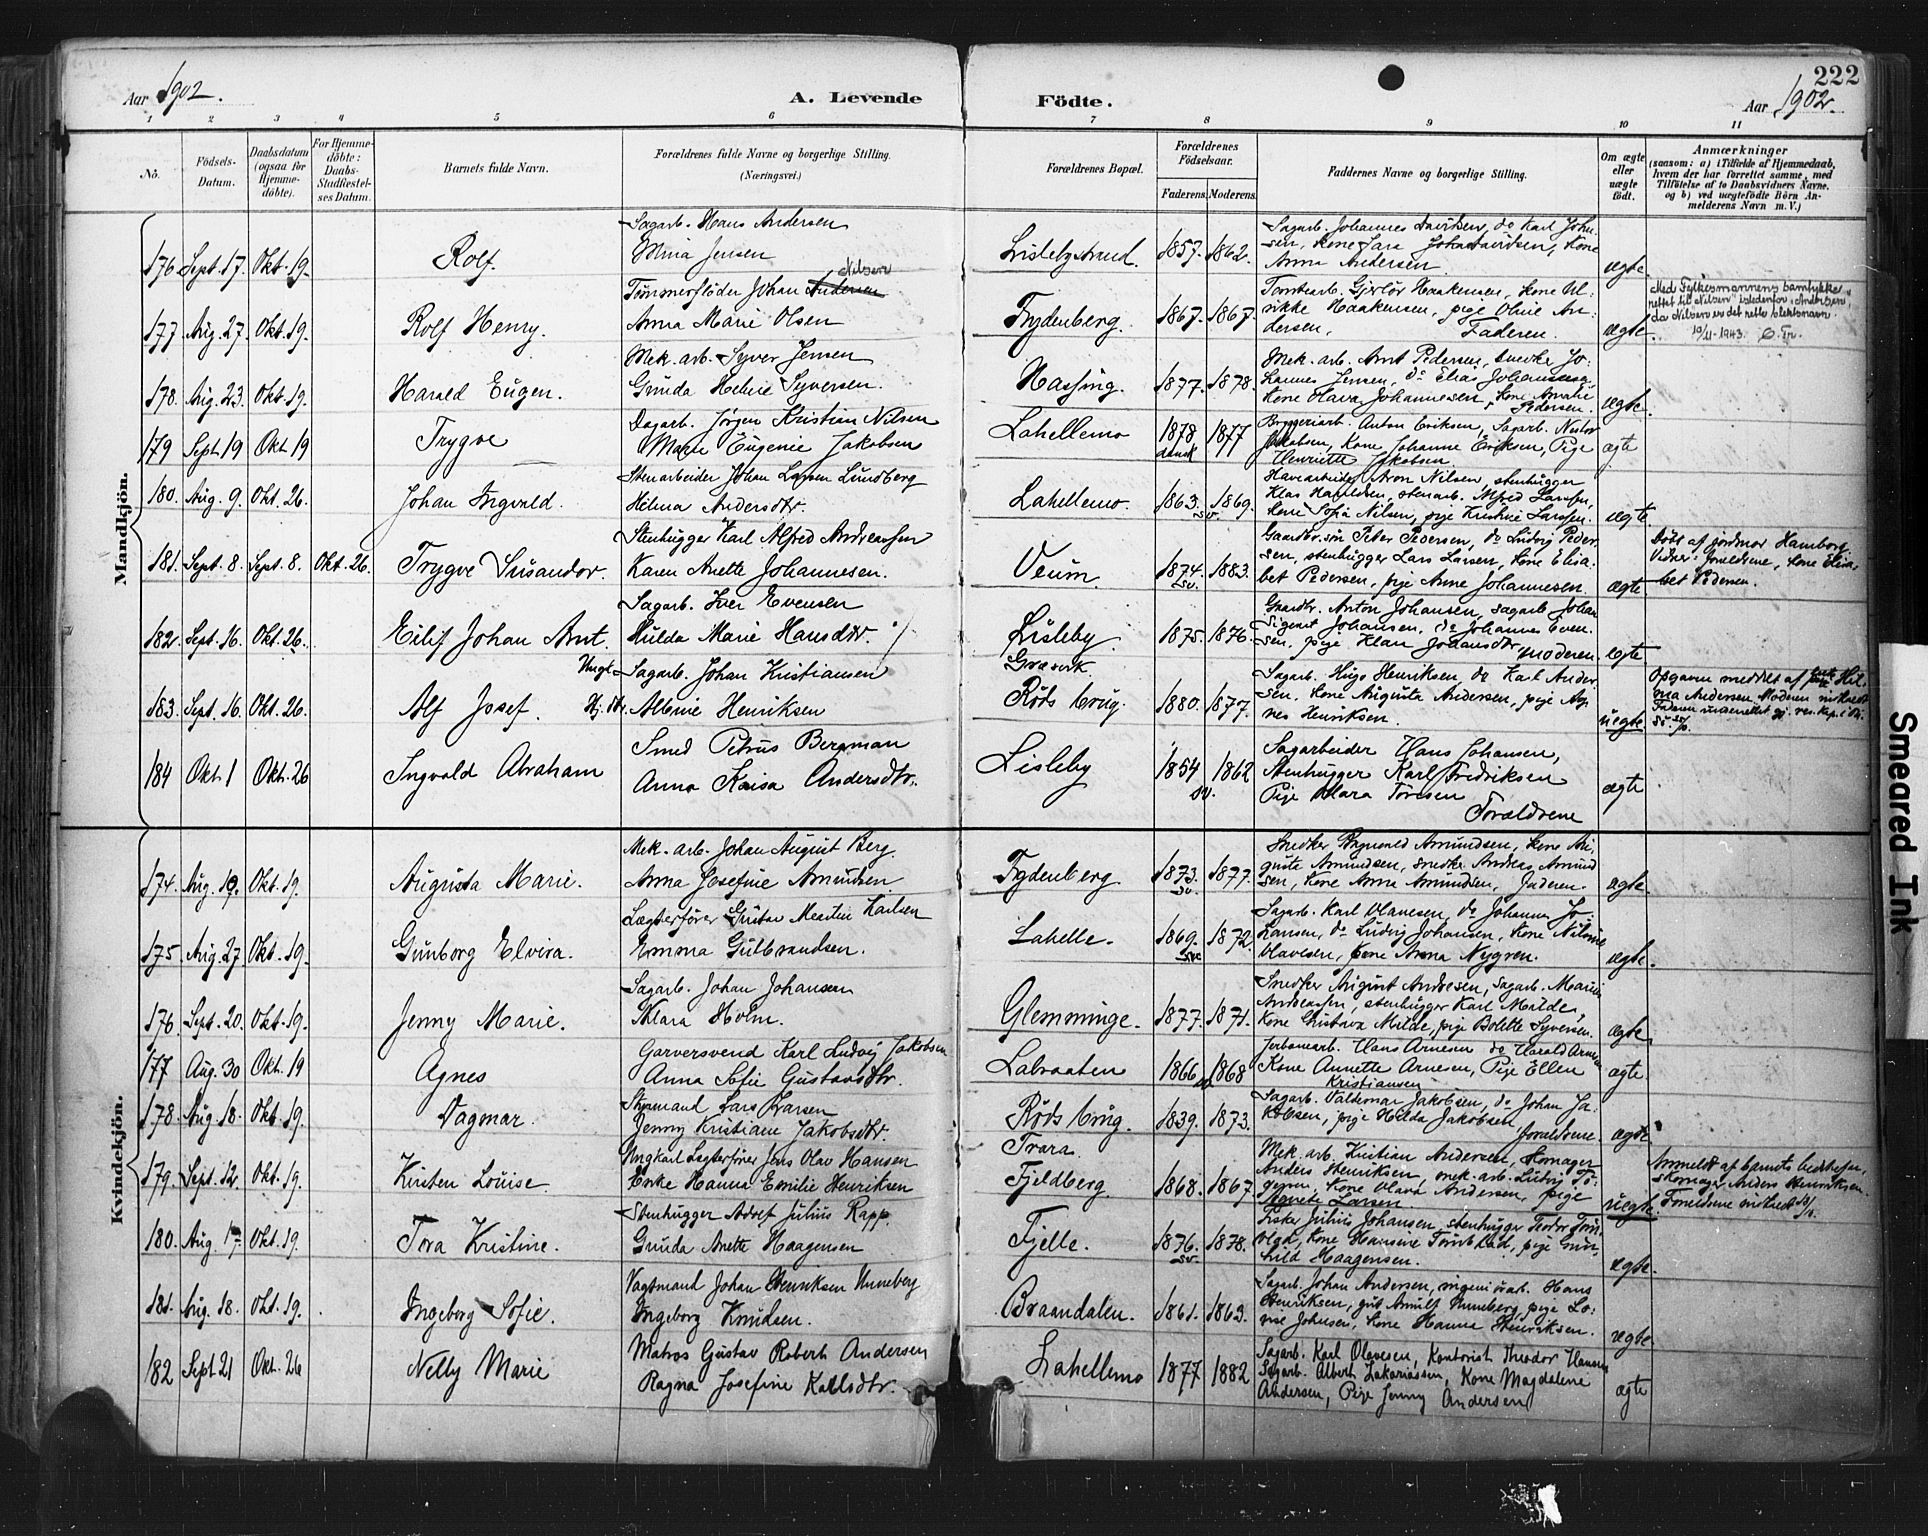 222
Aar 1902.
A. Levende Fødte.
Aar 1902.
1 2 3 4 5 6 7 8 9 10 11
No.
Fødsels-Datum.
Daabsdatum (ogsaa for Hjemme-døbte).
For Hjemme-døbte: Daabs-Stadfæstel-ses Datum.
Barnets fulde Navn.
Forældrenes fulde Navne og borgerlige Stilling.
(Næringsvei.)
Forældrenes Bopæl.
Forældrenes Fødselsaar.
Faderens. Moderens.
Faddernes Navne og borgerlige Stilling.
Om ægte eller uægte født.
Anmærkninger
(saasom: a) i Tilfælde af Hjemmedaab,
hvem der har forrettet samme, med
Tilføielse af to Daabsvidners Navne.
og b) ved uægtefødte Børn An-
melderens Navn m. V.)
Mandkjøn.
176. Sept. 17. Okt. 19. Rolf.
Sagarb. Hans Andersen
Mina Jensen
Lislebystrand. 1857. 1862.
Sagarb. Johannes Davidsen, do Karl Johan-
sen, Kone Sara Johan Davidsen, Kone
Anna Andersen. ægte.
177. Aug. 27. Okt. 19. Rolf Henry.
Nilsen
Tømmerfløder Johan Andersen
Anna Marie Olsen
Frydenberg. 1867. 1867.
Haakensen, Kone Ul-
rikke Haakensen, pige Olive An-
dersen, Faderen. ægte.
Med Fylkesmannens samtykke
rettet til "Nilsen" istedenfor "Andersen",
da Nilsen er det rette slektsnavn.
19/11-1943.
178. Aug. 23. Okt. 19. Harald Eugen.
Mek. arb. Syver Jensen
Gunda Helene Syversen.
1877. 1878.
Mek. arb. Arnt Pedersen, snedke Jo-
hannes Jensen, do Elias Johannesen,
Kone Olava Johannesen, Kone Amalie
Pedersen. ægte.
179 Sept 19 Okt 19 Trygve
Dagarb. Jørgen Kristian Nilsen
Marie Eugenie Jakobsen
Lahellemo 1878 dansk 1877
Bryggeriarb. Anton Eriksen, Sagarb. Nestor
Jakobsen, Kone Johanne Eriksen, Pige
Henriette Jakobsen. ægte
180. Aug. 9. Okt. 26. Johan Ingvald.
Stenarbeider Johan Larsen Lundberg
Helena Andersdtr.
Lahellemo. 1863. sv. 1869.
Havearbeider Aron Nilsen, stenhugger
Klas Haraldsen, stenarb. Alfred Larssen,
Kone Sofia Nilsen, pige Kristine Larssen. ægte
181. Sept. 8. Sept. 8. Okt. 26. Trygve Susandor.
Stenhugger Karl Alfred Andreassen
Karen Anette Johannesen.
Veum. 1874. sv. 1883.
Gaardbr. søn Peter Pedersen, do Ludvig Peder-
sen, stenhugger Lars Larsen, Kone Elisa-
bet Pedersen, pige Anne Johannesen. ægte
Døbt af jordmor Hamborg.
Vidner: Forældrene, Kone Elisa-
bet Pedersen.
182. Sept. 16. Okt. 26. Eilif Johan Arnt.
Sagarb. Iver Evensen
Hulda Marie Hansdtr.
Lisleby. 1875. 1876.
Gaardbr. Anton Johansen, sagarb. Johan
Sigvart Johansen, do Johannes Even-
sen, pige Klara Johansdtr, Moderen. ægte
183. Sept. 16. Okt. 26. Alf Josef.
Ungk. Sagarb. Johan Kristiansen
Albine Henriksen
Græsvik
Røds brug. 1880. 1877.
Sagarb. Hugo Henriksen, do Karl Ander-
sen, Kone Augusta Andersen, pige Ag-
nes Henriksen. uægte.
Opgaven meddelt af Hil-
ma Andersen.
184 Okt. 1 Okt. 26 Ingvald Abraham
Smed Petrus Bergman
Anna Kaisa Andersdtr.
Lisleby 1854 sv. 1862
Sagarbeider Hans Johansen,
Stenhugger Karl Fredriksen
Pige Klara Toresen
Forældrene ægte
Kvindekjøn.
174. Aug. 19. Okt. 19. Augusta Marie.
Mek. arb. Johan August Berg.
Anna Josefine Amundsen.
Frydenberg 1873. sv. 1877.
Snedker Ragnvald Amundsen, Kone Au-
gusta Amundsen, snedke Andreas Amund-
sen, Kone Anna Amundsen, Faderen. ægte.
175. Aug. 27. Okt. 19. Gunborg Elvira.
Lægterfører Gustav Martin Karlsen
Emma Gulbrandsen.
Lahelle. 1869. sv. 1872.
Sagarb. Karl Olavesen, do Johannes Jo-
hansen, do Ludvig Johansen, Kone Nilsine
Olavesen, Kone Anna Nygren. ægte.
176. Sept. 20. Okt. 19. Jenny Marie.
Sagarb. Johan Johansen
Klara Holm.
Glemminge. 1877. 1871.
Snedker August Andresen, Sagarb. Marius
Andreassen, stenhugger Karl Milde,
Kone Gustava Milde, pige Bolette Syversen. ægte.
177 Aug. 30 Okt. 19 Agnes
Garversvend Karl Ludvig Jakobsen
Anna Sofie Gustavsdtr.
Labraaten 1866 1868
Jerbanearb. Hans Arnesen do Harald Arnesen
Kone Annette Arnesen, Pige Ellen
Kristiansen ægte.
178. Aug. 18. Okt. 19. Dagmar.
Styrmand Lars Larsen
Jenny Kristiane Jakobsdtr.
Røds brug. 1839. 1873.
Sagarb. Valdemar Jakobsen, do Johan Ja-
kobsen, pige Hilda Jakobsen, forældrene. ægte.
179. Sept. 12. Okt. 19. Kirsten Louise
Ungkarl Lægterfører Jens Olav Hansen
Enke Hanna Emilie Henriksen
Trara.
Fjeldberg. 1868. 1867.
Mek. arb. Kristian Andersen, Skomager
Anders Henriksen, mek. arb. Ludvig Tø-
gersen, Kone Olava Andersen, pige
Agnete Larsen. uægte.
Anmeldt af barnets bedstefar,
skomager Anders Henriksen.
180. Aug. 17. Okt. 19. Tora Kristine.
Stenhugger Adolf Julius Rapp.
Gunda Anette Haagensen
Fjelle. 1876. sv. 1878.
Fisker Julius Johansen, stenhugger Teodor
Kone Hansine pige Gun-
hild Haagensen. ægte.
181. Aug. 18. Okt. 19. Ingeborg Sofie.
Vagtmand Johan Henriksen Unneberg
Ingeborg Knudsen.
Braandalen. 1861. 1863.
Sagarb. Johan Andersen, Hans
Henriksen, gut Arnulf Unneberg, pige Lo-
vise Johnsen, Kone Hanna Henriksen. ægte.
182 Sept 21 Okt. 26 Nelly Marie
Matros Gustav Robert Andersen
Ragna Josefine Kallsdtr.
Lahellemo 1877 1882
Sagarb. Karl Olavesen, Kontorist Theodor Hansen
Sagarb. Albert Zakariassen, Kone Magdalene
Andersen, Pige Jenny Andersen ægte
Smeared Ink